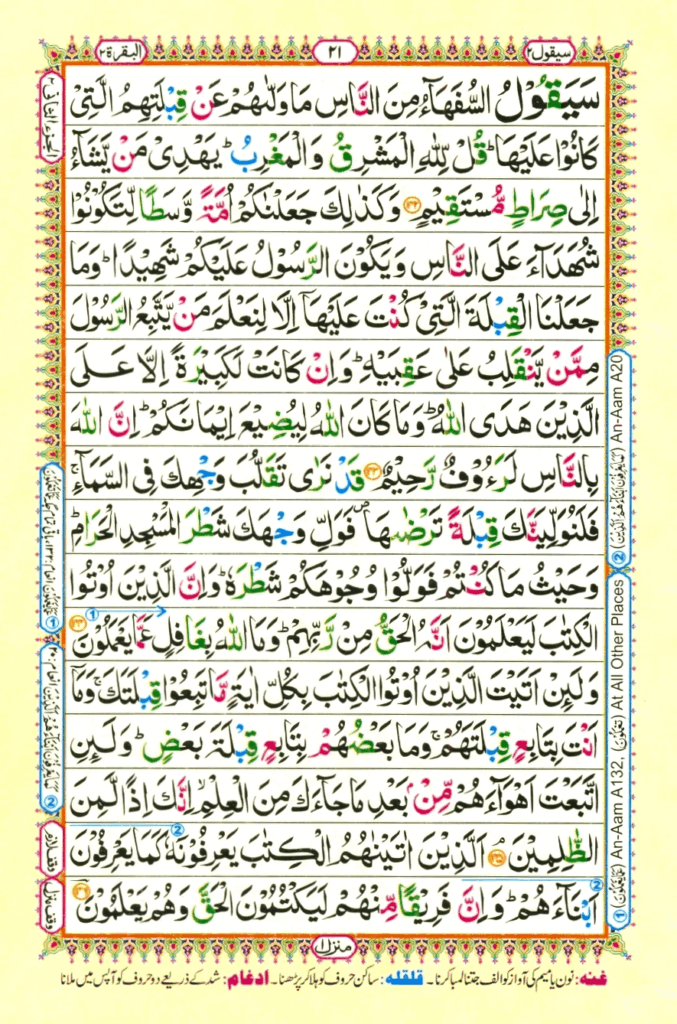 سيقول٢
٢١
البقرة٢
سَيَقُوْلُ السُّفَهَآءُ مِنَ النَّاسِ مَا وَلّٰىهُمْ عَنْ قِبْلَتِهِمُ الَّتِيْ
كَانُوْا عَلَيْهَا ؕ قُلْ لِّلّٰهِ الْمَشْرِقُ وَالْمَغْرِبُ ؕ يَهْدِيْ مَنْ يَّشَآءُ
اِلٰى صِرَاطٍ مُّسْتَقِيْمٍ ۝۱۴۲ وَكَذٰلِكَ جَعَلْنٰكُمْ اُمَّةً وَّسَطًا لِّتَكُوْنُوْا
شُهَدَآءَ عَلَى النَّاسِ وَيَكُوْنَ الرَّسُوْلُ عَلَيْكُمْ شَهِيْدًا ؕ وَمَا
جَعَلْنَا الْقِبْلَةَ الَّتِيْ كُنْتَ عَلَيْهَآ اِلَّا لِنَعْلَمَ مَنْ يَّتَّبِعُ الرَّسُوْلَ
مِمَّنْ يَّنْقَلِبُ عَلٰى عَقِبَيْهِ ؕ وَاِنْ كَانَتْ لَكَبِيْرَةً اِلَّا عَلَى
الَّذِيْنَ هَدَى اللّٰهُ ؕ وَمَا كَانَ اللّٰهُ لِيُضِيْعَ اِيْمَانَكُمْ ؕ اِنَّ اللّٰهَ
بِالنَّاسِ لَرَءُوْفٌ رَّحِيْمٌ ۝۱۴۳ قَدْ نَرٰى تَقَلُّبَ وَجْهِكَ فِي السَّمَآءِ ۚ
فَلَنُوَلِّيَنَّكَ قِبْلَةً تَرْضٰىهَا ۪ فَوَلِّ وَجْهَكَ شَطْرَ الْمَسْجِدِ الْحَرَامِ ؕ
وَحَيْثُ مَا كُنْتُمْ فَوَلُّوْا وُجُوْهَكُمْ شَطْرَهٗ ؕ وَاِنَّ الَّذِيْنَ اُوْتُوا
الْكِتٰبَ لَيَعْلَمُوْنَ اَنَّهُ الْحَقُّ مِنْ رَّبِّهِمْ ؕ وَمَا اللّٰهُ بِغَافِلٍ عَمَّا يَعْمَلُوْنَ ۝۱۴۴
وَلَئِنْ اَتَيْتَ الَّذِيْنَ اُوْتُوا الْكِتٰبَ بِكُلِّ اٰيَةٍ مَّا تَبِعُوْا قِبْلَتَكَ ۚ وَمَآ
اَنْتَ بِتَابِعٍ قِبْلَتَهُمْ ۚ وَمَا بَعْضُهُمْ بِتَابِعٍ قِبْلَةَ بَعْضٍ ؕ وَلَئِنِ
اتَّبَعْتَ اَهْوَآءَهُمْ مِّنْۢ بَعْدِ مَا جَآءَكَ مِنَ الْعِلْمِ ۙ اِنَّكَ اِذًا لَّمِنَ
الظّٰلِمِيْنَ ۝۱۴۵ اَلَّذِيْنَ اٰتَيْنٰهُمُ الْكِتٰبَ يَعْرِفُوْنَهٗ كَمَا يَعْرِفُوْنَ
اَبْنَآءَهُمْ ؕ وَاِنَّ فَرِيْقًا مِّنْهُمْ لَيَكْتُمُوْنَ الْحَقَّ وَهُمْ يَعْلَمُوْنَ ۝۱۴۶
الجزء الثانی ٢
وقف لازم
وقف منزل
① (عَمَّا يَعْمَلُوْنَ) An-Aam A132, (تَعْمَلُوْنَ) At All Other Places
② (كَمَا يَعْرِفُوْنَ اَبْنَآءَهُمْ اَلَّذِيْنَ) An-Aam A20
منزل ١
غنه: نون یا میم کی آواز کو الف جتنا لمبا کرنا۔ قلقله: ساکن حروف کو ہلا کر پڑھنا۔ ادغام: شد کے ذریعے دو حروف کو آپس میں ملانا